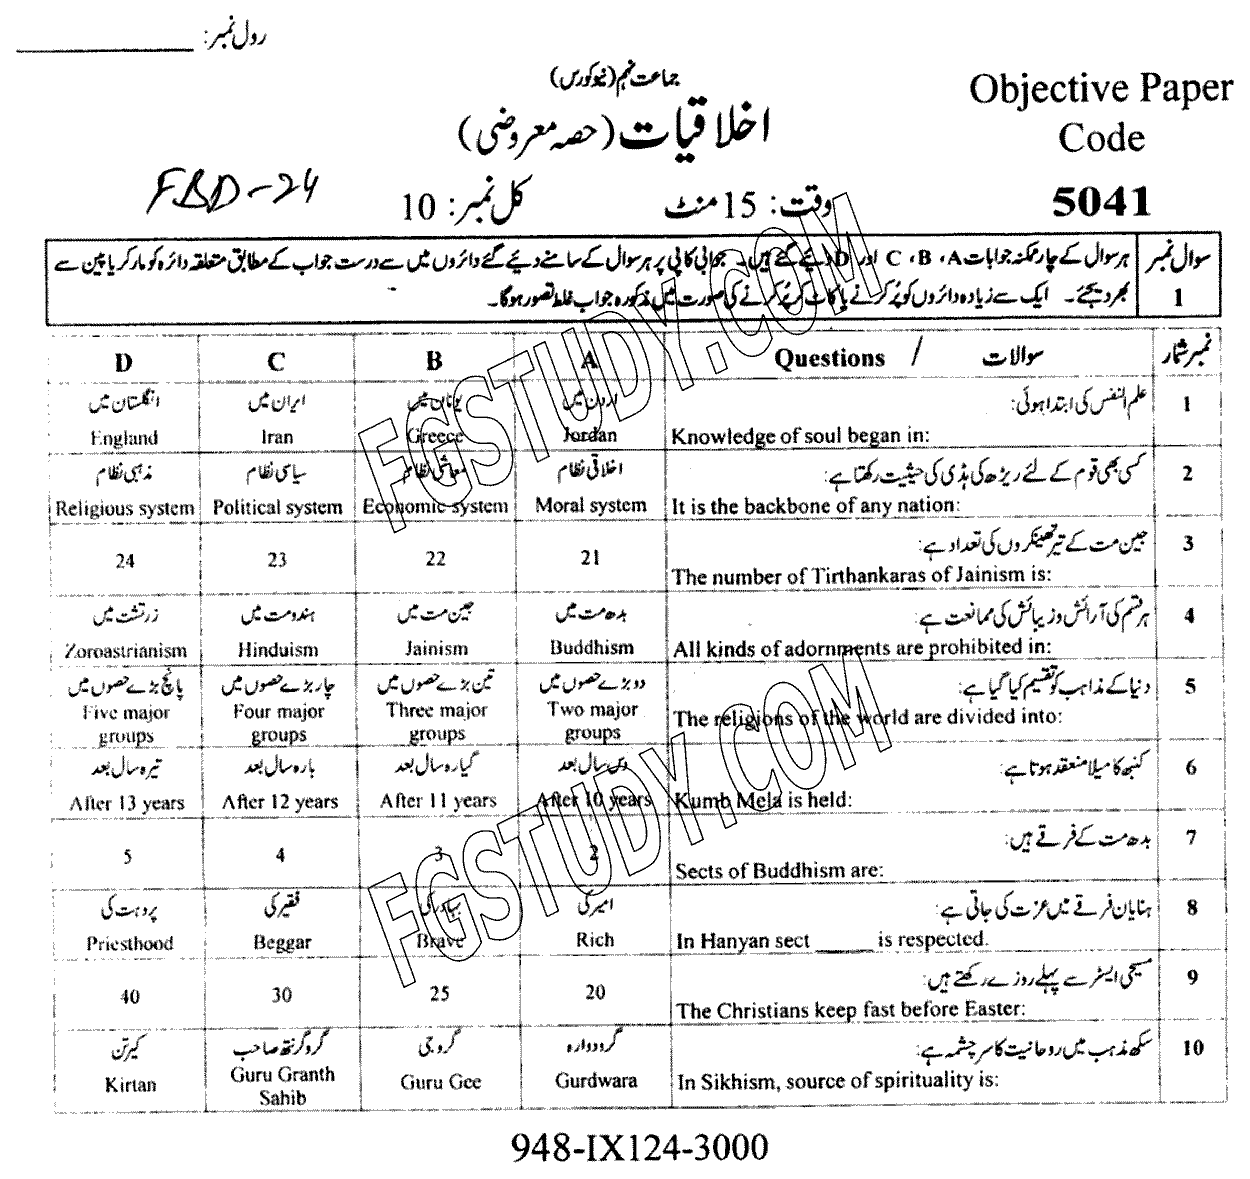 رول نمبر: ____________
جماعت نہم (نیو کورس)
اخلاقیات (حصہ معروضی)
Objective Paper
Code
5041
وقت: 15 منٹ
کل نمبر: 10
FBD-24
سوال نمبر 1
ہر سوال کے چار ممکنہ جوابات A، B، C اور D دیئے گئے ہیں۔ جوابی کاپی پر ہر سوال کے سامنے دیئے گئے دائروں میں سے درست جواب کے مطابق متعلقہ دائرہ کو مارکر یا پین سے
بھر دیجئے۔ ایک سے زیادہ دائروں کو پُر کرنے یا کاٹ کر پُر کرنے کی صورت میں مذکورہ جواب غلط تصور ہوگا۔
نمبر شمار سوالات / Questions A B C D
1 علم النفس کی ابتدا ہوئی: اردن میں یونان میں ایران میں انگلستان میں
Knowledge of soul began in: Jordan Greece Iran England
2 کسی بھی قوم کے لئے ریڑھ کی ہڈی کی حیثیت رکھتا ہے: اخلاقی نظام معاشی نظام سیاسی نظام مذہبی نظام
It is the backbone of any nation: Moral system Economic system Political system Religious system
3 جین مت کے تیرتھینکروں کی تعداد ہے:
The number of Tirthankaras of Jainism is: 21 22 23 24
4 ہر قسم کی آرائش و زیبائش کی ممانعت ہے: بدھ مت میں جین مت میں ہندومت میں زرتشت میں
All kinds of adornments are prohibited in: Buddhism Jainism Hinduism Zoroastrianism
5 دنیا کے مذاہب کو تقسیم کیا گیا ہے: دو بڑے حصوں میں تین بڑے حصوں میں چار بڑے حصوں میں پانچ بڑے حصوں میں
The religions of the world are divided into: Two major groups Three major groups Four major groups Five major groups
6 کنبھ کا میلا منعقد ہوتا ہے: دس سال بعد گیارہ سال بعد بارہ سال بعد تیرہ سال بعد
Kumb Mela is held: After 10 years After 11 years After 12 years After 13 years
7 بدھ مت کے فرقے ہیں:
Sects of Buddhism are: 2 3 4 5
8 ہنایان فرقے میں عزت کی جاتی ہے: امیر کی بہادر کی فقیر کی پروہت کی
In Hanyan sect ______ is respected. Rich Brave Beggar Priesthood
9 مسیحی ایسٹر سے پہلے روزے رکھتے ہیں:
The Christians keep fast before Easter: 20 25 30 40
10 سکھ مذہب میں روحانیت کا سرچشمہ ہے: گردوارہ گرو جی گرو گرنتھ صاحب کیرتن
In Sikhism, source of spirituality is: Gurdwara Guru Gee Guru Granth Sahib Kirtan
948-IX124-3000
FGSTUDY.COM
FGSTUDY.COM